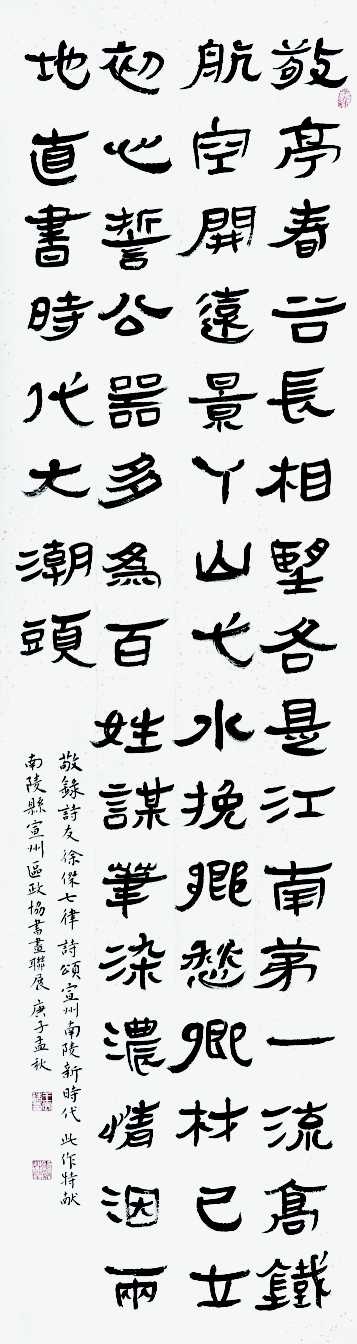 敬亭春谷長相望各是江南第一流高鐵
航空開遠景丫山弋水挽鄉愁卿材已立
初心誓公器多為百姓謀筆染濃情洇兩
地直書時代大潮頭
敬錄詩友徐傑七律詩頌宣州南陵新時代 此作特献
南陵縣宣州區政協書畫聯展 庚子孟秋